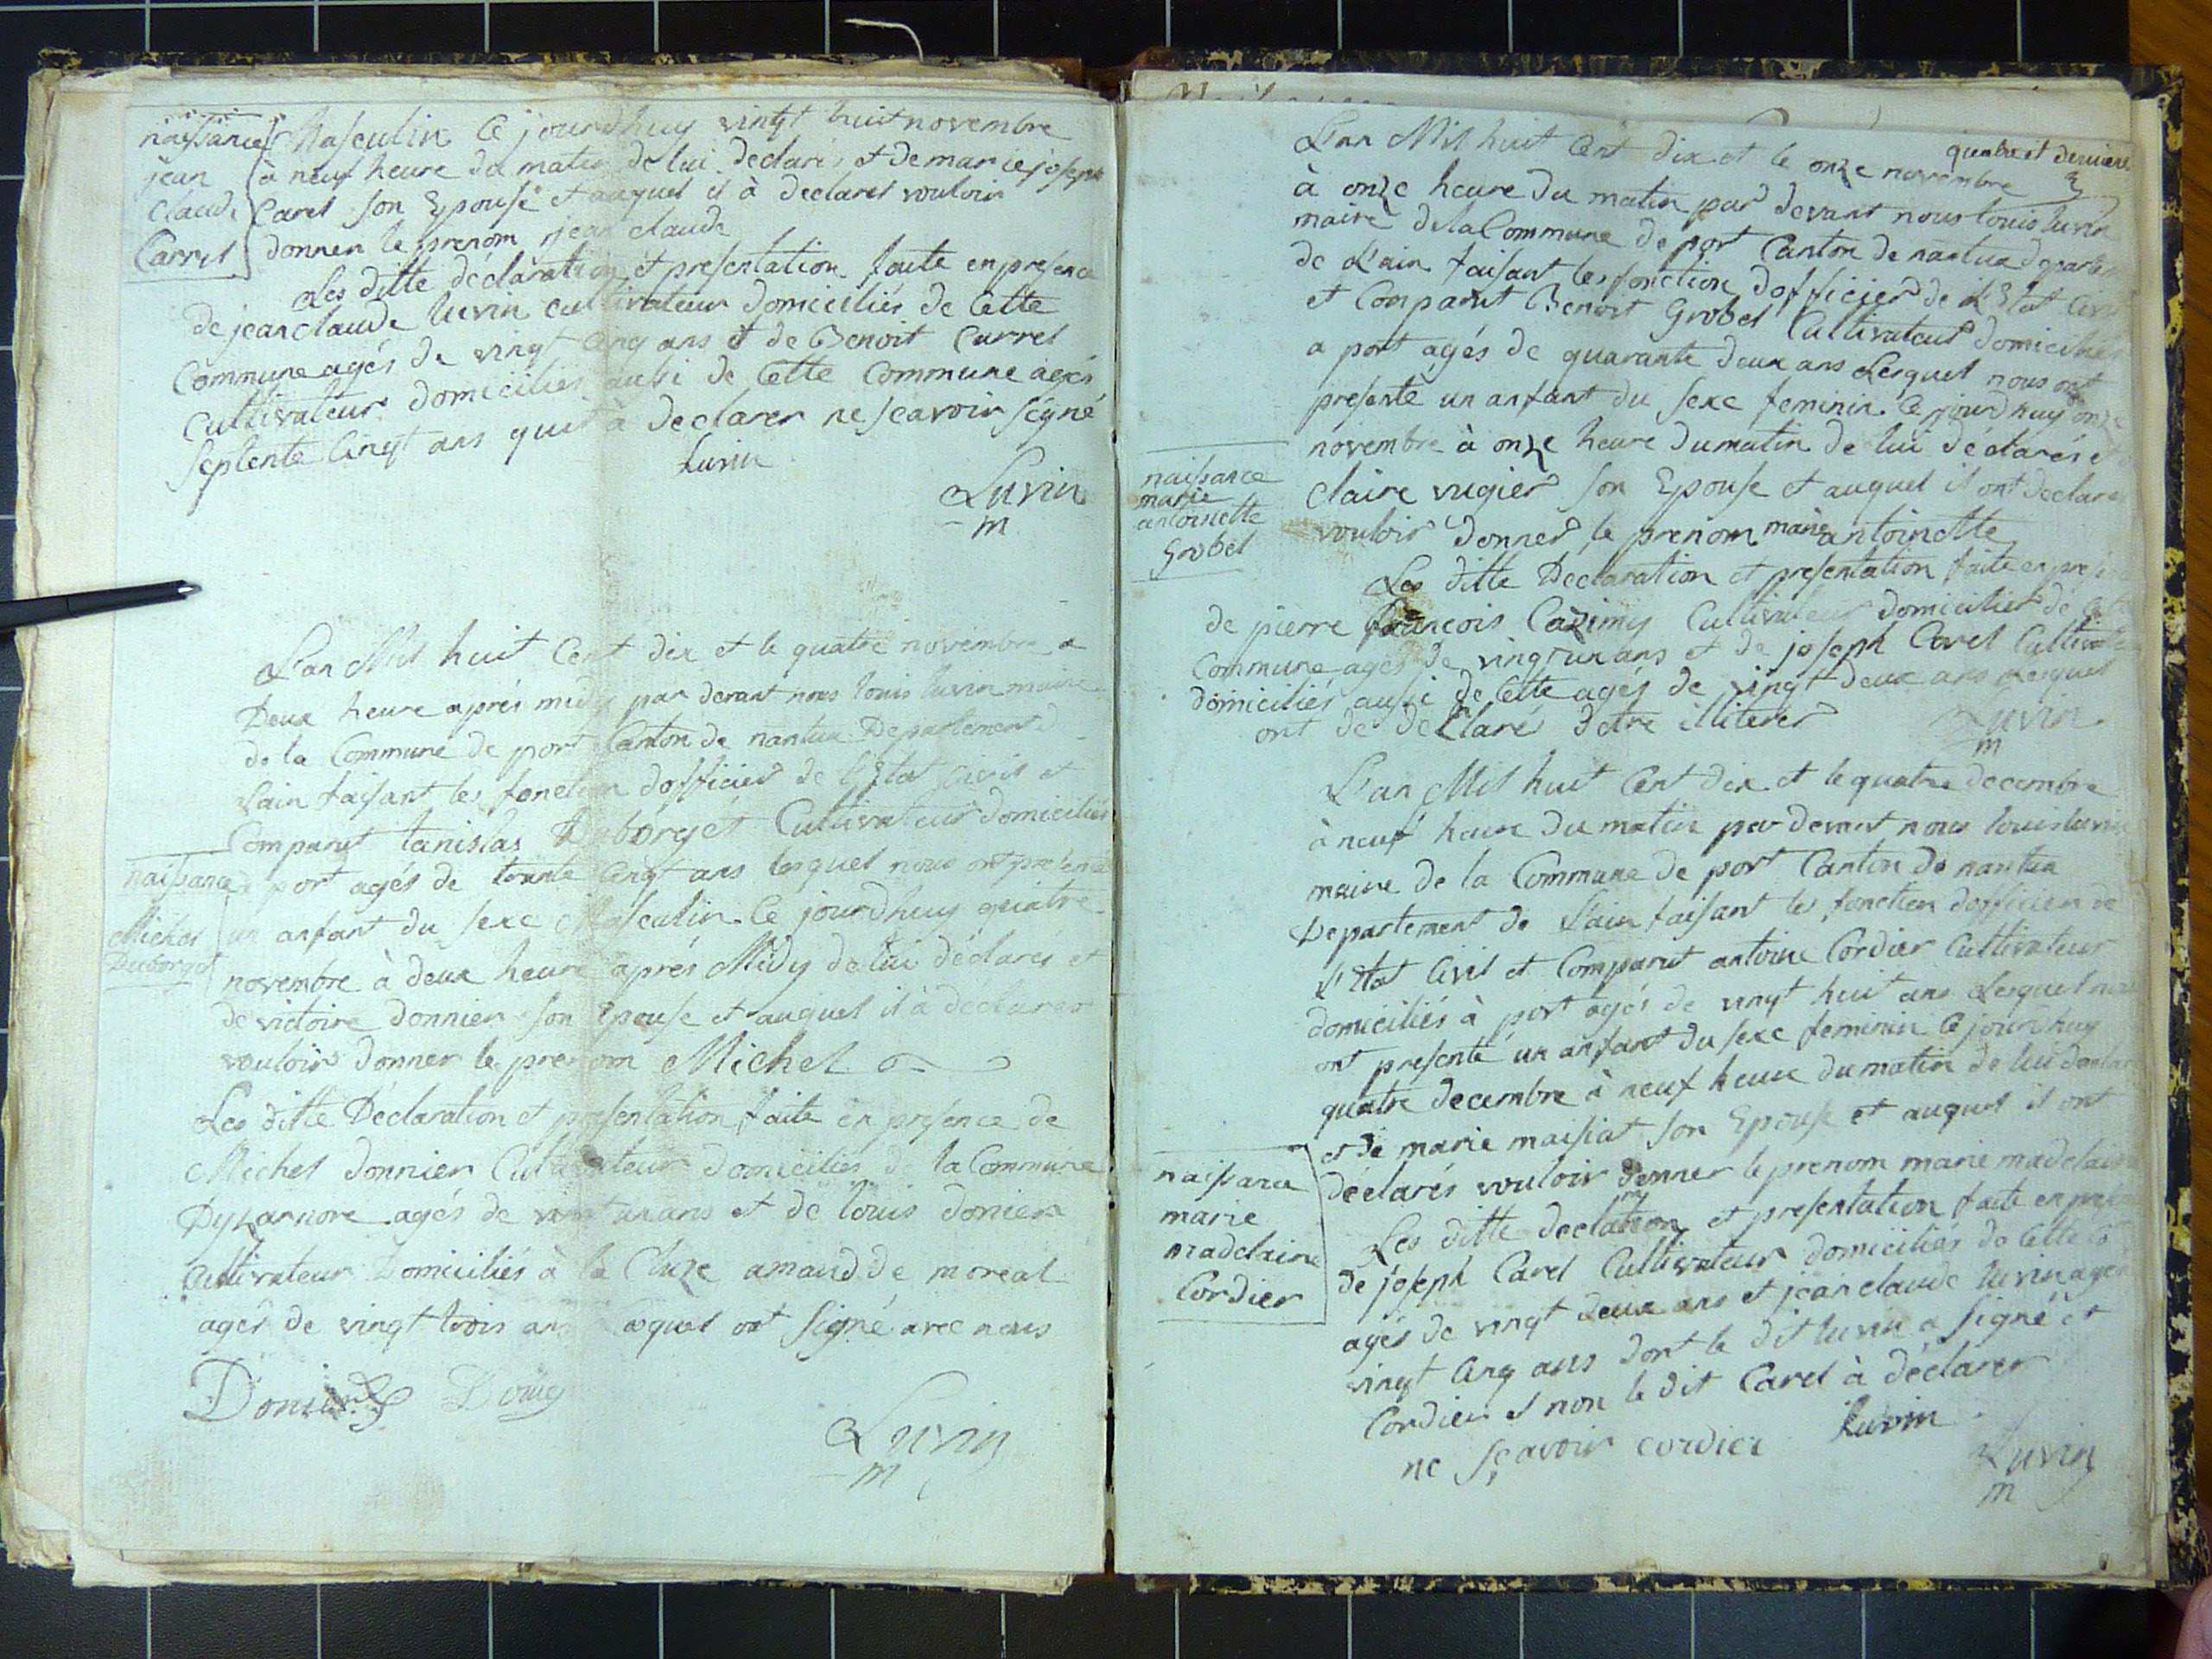 naissance
jean
Claude
Carrel
Masculin Ce jourdhuy vingt huit novembre
à neuf heure du matin de lui declarés et de marie joseph
Carel son Epouse et auquel il à declarer vouloir
donner le prenom jean claude
Les ditte déclaration et presentation faite en presence
de jean claude luvin cultivateur domiciliés de Cette
Commune agés de vingt Cinq ans et de Benoit Carrel
Cultivateur domiciliés aussi de Cette Commune agés
septente Cinqt ans qui à declarer ne scavoir signé
Luvin
Luvin
m
L'an Mil huit Cent dix et le quatre novembre a
Deux heure aprés midy par devant nous louis luvin maire
de la Commune de port Canton de nantua Departement d
Lain faisant les fonction dofficier de L'Etat Civil et
Comparut tanislas Duborget Cultivateur domiciliés
naissance
Michel
Duborget
à port agés de trante Cinqt ans lesquel nous ont presenté
un anfant du sexe Masculin Ce jourdhuy quatre
novembre à deux heure aprés Midy de lui déclarés et
de victoire donnier son Epouse et auquel il à declarer
vouloir donner le prenom Michel
Les ditte Déclaration et presentation faite en presence de
Michel donnier Cultivateur domiciliés de la Commune
Dyzarnore agés de vingt un ans et de louis donier
Cultivateur Domiciliés à la Cluze amaud de moreal
agés de vingt trois ans Lequel ont signé avec nous
Donier
Luvin
m
quatre et derniere
L'an Mil huit Cent dix et le onze novembre
à onze heure du matin par devant nous louis luvin
maire de la Commune de port Canton de nantua departem
de L'ain faisant les fonction dofficier de L'Etat Civil
et Comparut Benoit Grobel Cultivateur domiciliés
a port agés de quarante deux ans Lesquel nous ont
presente un anfant du sexe feminin Ce jourdhuy onze
novembre à onze heure du matin de lui déclarés et
naissance
marie
antoinette
Grobel
Claire vugier son Epouse et auquel il ont declare
vouloir donner le prenom marie antoinette
Les ditte Declaration et presentation faite en prese
de pierre francois Cazimy Cultivateur domicilier de Cette
Commune agés de vingt un ans et de joseph Carel Cultivate
domiciliés aussi de Cette agés de vingt deux ans Lequel
ont de declarés detre illiterer
Luvin
m
L'an Mil huit Cent dix et le quatre decembre
à neuf heure du matin par devant nous louis luvin
maire de la Commune de port Canton de nantua
Departement de Lain faisant les fonction dofficier de
L'Etat Civil et Comparut antoine Cordier Cultivateur
domiciliés à port agés de vingt huit ans Lesquel nous
ont presenté un anfant du sexe feminin Ce jourdhuy
quatre decembre à neuf heure du matin de lui declar
et de marie maisiat son Epouse et auquel il ont
naissance
marie
madelaine
Cordier
déclarés vouloir donner le prenom marie madelaine
Les ditte declation et presentation faite en prese
de joseph Carel Cultivateur domiciliés de Cette Co
agés de vingt deux ans et jean claude luvin agés
vingt Cinq ans dont le dit luvin a signé et
Cordier et non le dit Carel à déclarer
ne sçavoir cordier Luvin
Luvin
m